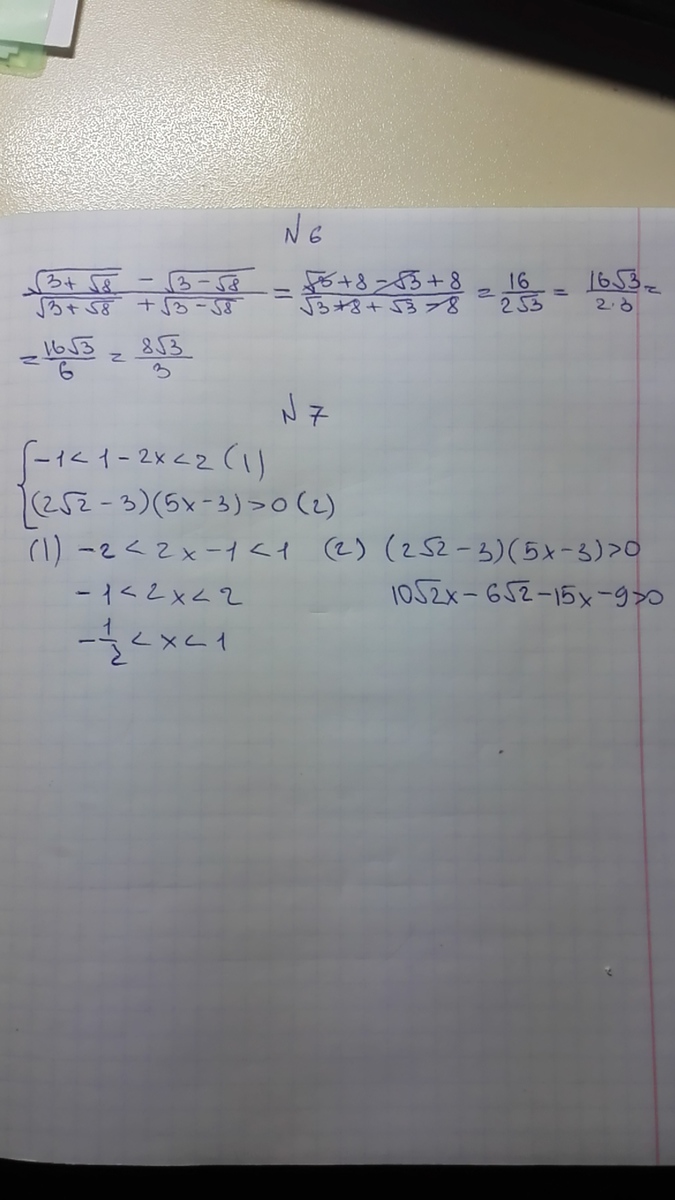 N 6
(√(3+√8) - √(3-√8))/(√(3+√8) + √(3-√8)) = (√3+8-√3+8)/(√3+8+√3-8) = 16/(2√3) = 16√3/(2·3) =
= 16√3/6 = 8√3/3
N 7
{ -1 < 1 - 2x < 2 (1)
(2√2 - 3)(5x - 3) > 0 (2)
(1) -2 < 2x - 1 < 1 (2) (2√2 - 3)(5x - 3) > 0
-1 < 2x < 2 10√2x - 6√2 - 15x - 9 > 0
-1/2 < x < 1